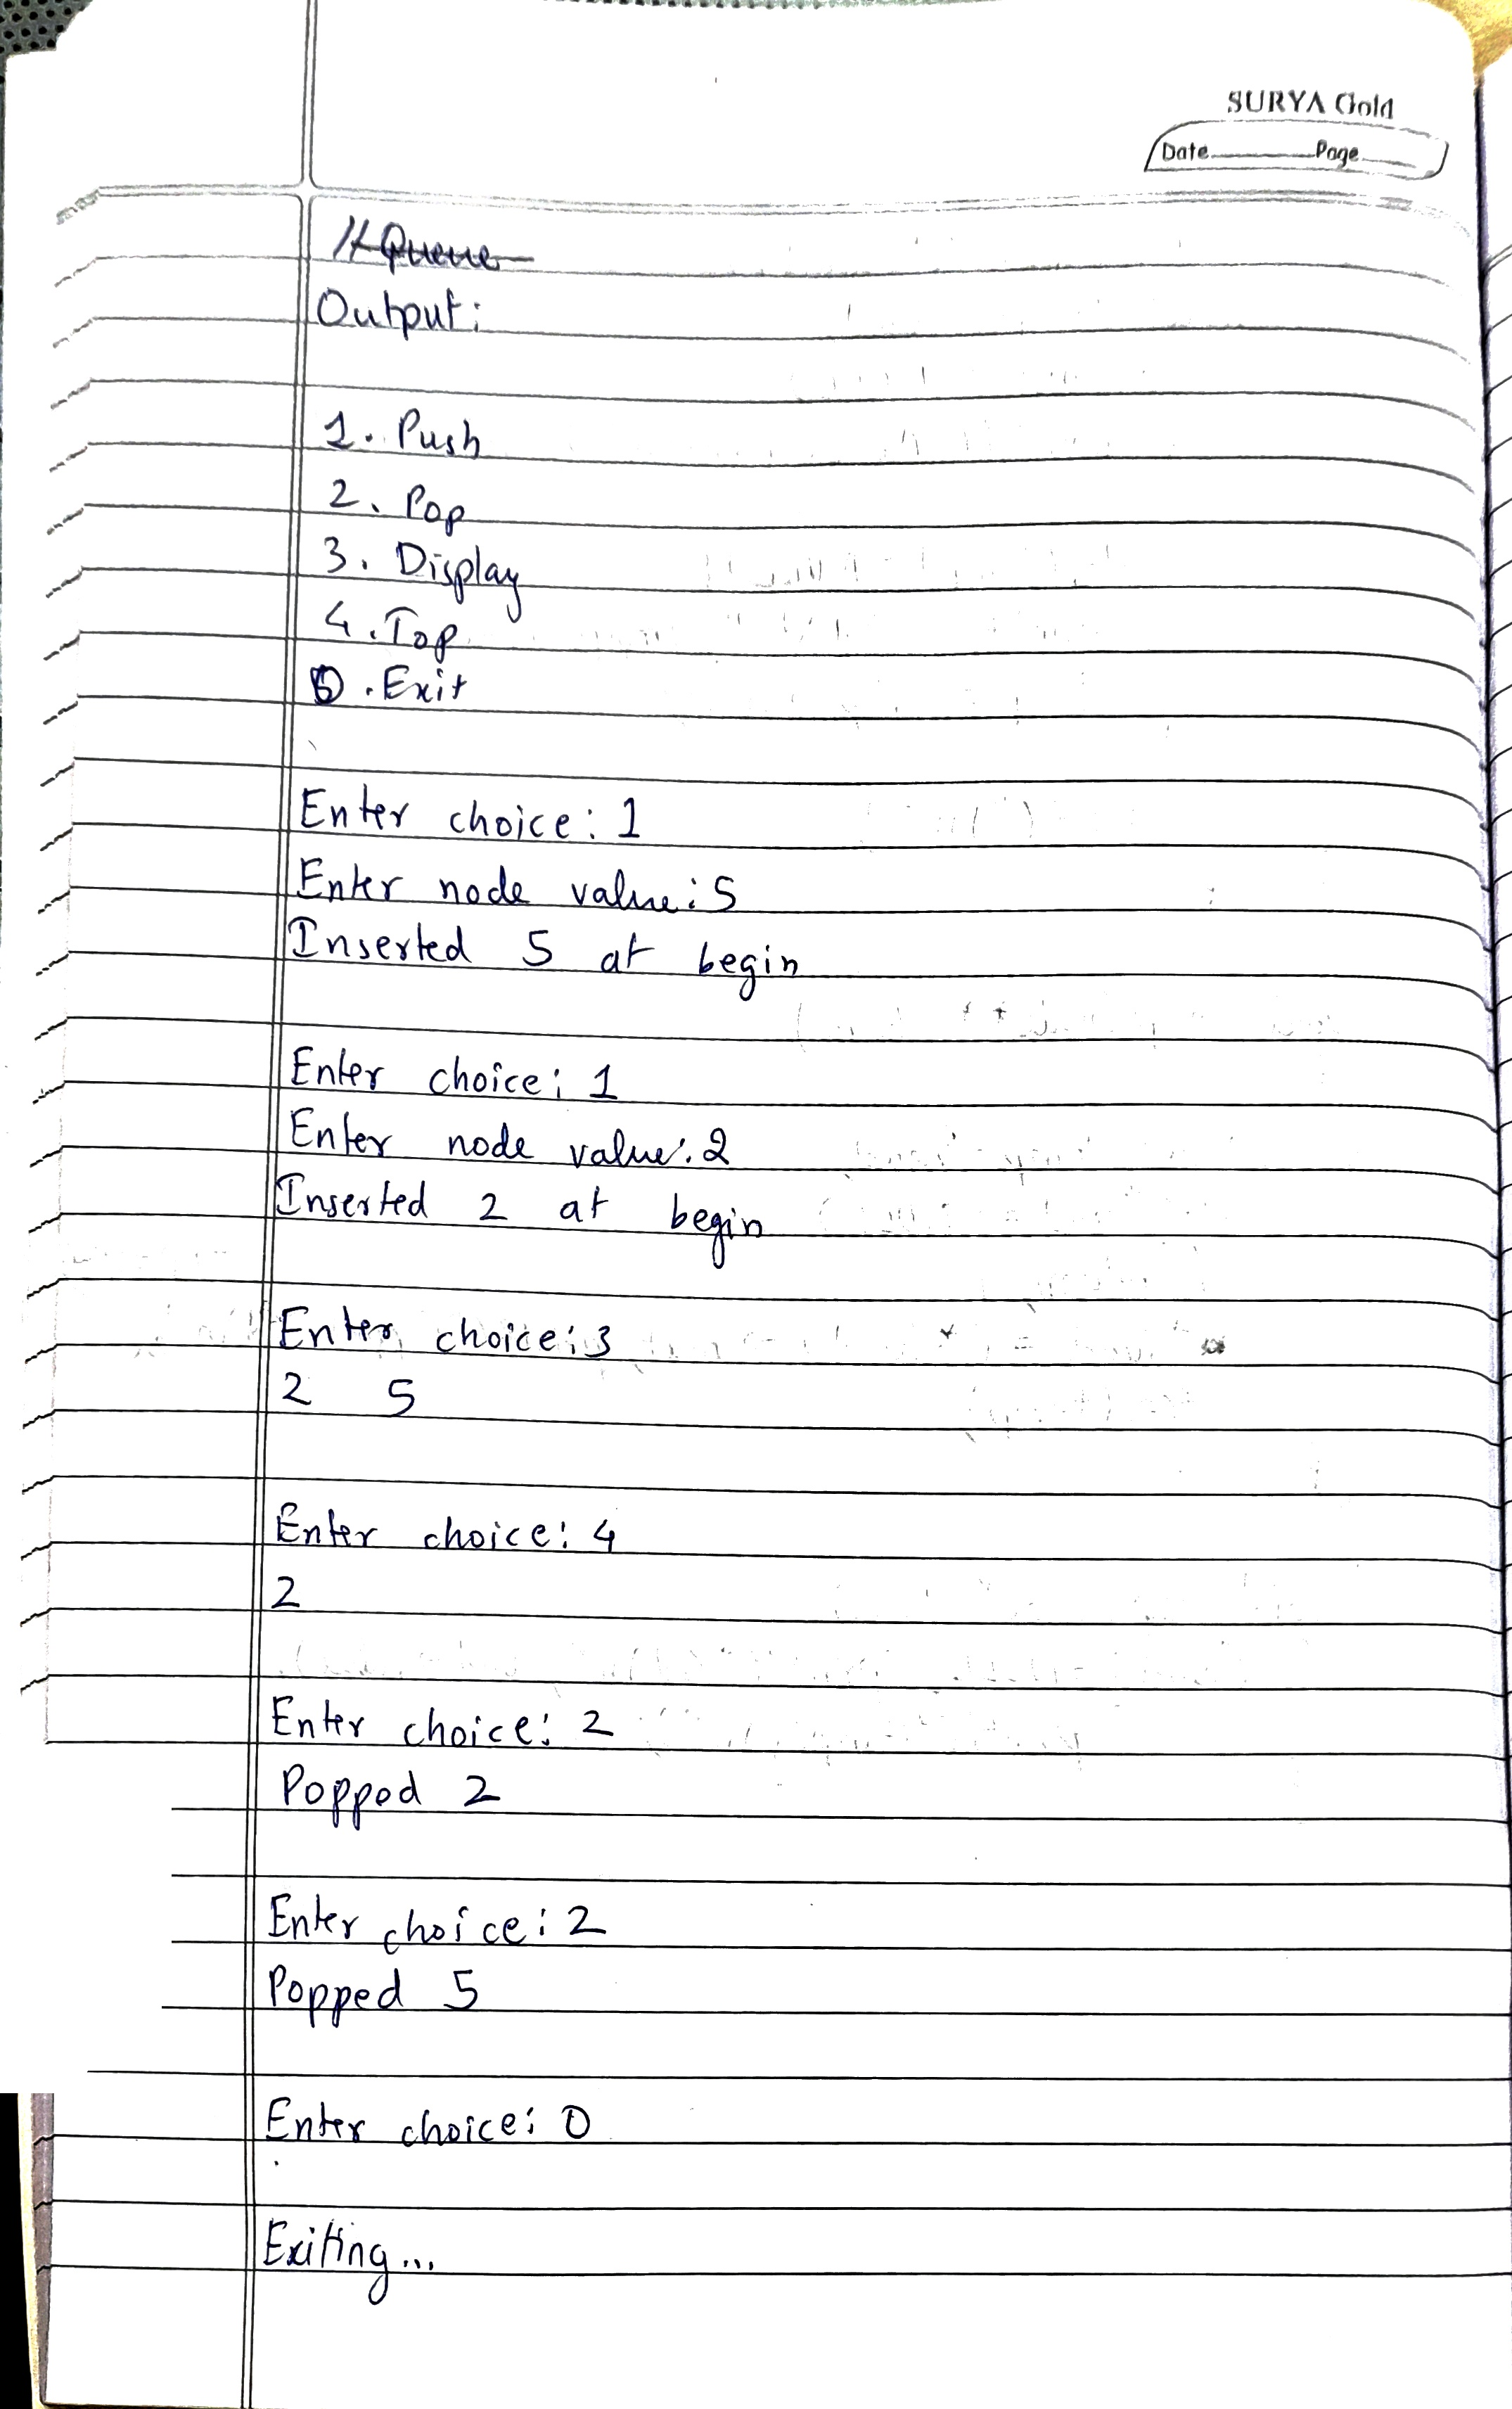 SURYA Gold
Date Page
// Queue
Output:
1. Push
2. Pop
3. Display
4. Top
0. Exit
Enter choice: 1
Enter node value: 5
Inserted 5 at begin
Enter choice: 1
Enter node value: 2
Inserted 2 at begin
Enter choice: 3
2 5
Enter choice: 4
2
Enter choice: 2
Popped 2
Enter choice: 2
Popped 5
Enter choice: 0
Exiting...